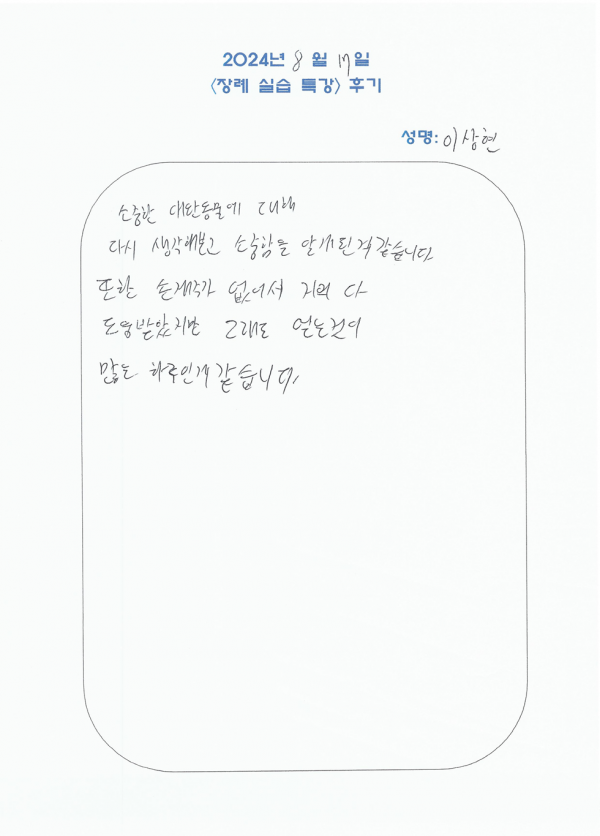 2024년 8월 17일
<장례 실습 특강> 후기
성명: 이상현
소중한 대반동물에 대해
다시 생각해보고 소중함을 알게된게같습니다
또한 손재주가 없어서 거의 다
도움받았지만 그래도 얻는것이
많은 하루인게같습니다.